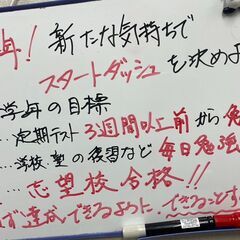 年！ 新たな気持ちで
スタートダッシュを決めよ
学年の目標
…定期テスト 3週間以上前から勉
…学校、塾の復習など 毎日勉強
…志望校合格!!
ず達成できるように、できることす